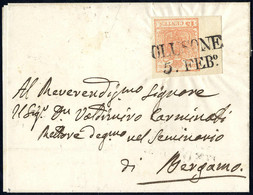 15 CENTES
OLLSONE
5. FEBº
Al Reverendissimo Signore
Il Sigr Dn Valdimiro Carminati
Rettore degmo nel Seminario
di
Bergamo